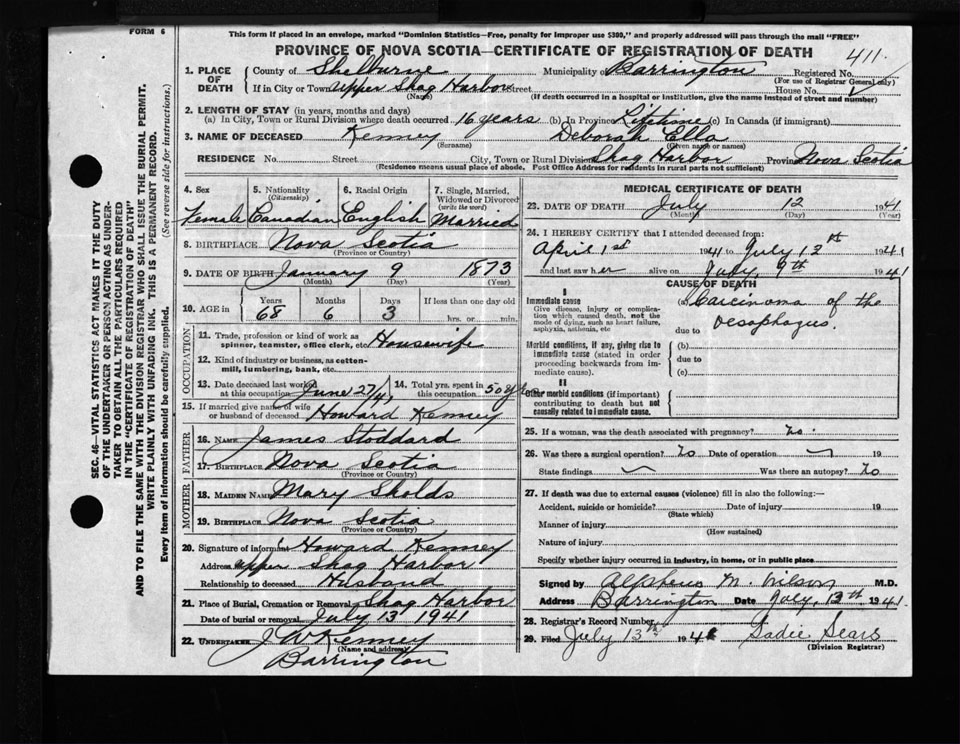 FORM 6
This form if placed in an envelope, marked "Dominion Statistics—Free, penalty for improper use $300," and properly addressed will pass through the mail "FREE"
PROVINCE OF NOVA SCOTIA—CERTIFICATE OF REGISTRATION OF DEATH
411
1. PLACE OF DEATH { County of Shelburne Municipality of Barrington Registered No.
(For use of Registrar General only)
If in City or Town Upper Shag Harbor Street House No.
(Name) (If death occurred in a hospital or institution, give the name instead of street and number)
2. LENGTH OF STAY (in years, months and days)
(a) In City, Town or Rural Division where death occurred 16 years (b) In Province Lifetime (c) In Canada (if immigrant)
3. NAME OF DECEASED Kenney Deborah Ella
(Surname) (Given name or names)
RESIDENCE No. Street City, Town or Rural Division Shag Harbor Province Nova Scotia
(Residence means usual place of abode. Post Office Address for residents in rural parts not sufficient)
4. Sex 5. Nationality (Citizenship) 6. Racial Origin 7. Single, Married, Widowed or Divorced (write the word)
Female Canadian English Married
8. BIRTHPLACE Nova Scotia
(Province or Country)
9. DATE OF BIRTH January 9 1873
(Month) (Day) (Year)
10. AGE IN { Years Months Days If less than one day old
68 6 3 hrs. or min.
OCCUPATION
11. Trade, profession or kind of work as spinner, teamster, office clerk, etc. Housewife
12. Kind of industry or business, as cotton-mill, lumbering, bank, etc.
13. Date deceased last worked at this occupation June 27/41 14. Total yrs. spent in this occupation 50 yrs
15. If married give name of wife or husband of deceased Howard Kenney
FATHER
16. NAME James Stoddard
17. BIRTHPLACE Nova Scotia
(Province or Country)
MOTHER
18. MAIDEN NAME Mary Sholds
19. BIRTHPLACE Nova Scotia
(Province or Country)
20. Signature of informant Howard Kenney
Address Upper Shag Harbor
Relationship to deceased Husband
21. Place of Burial, Cremation or Removal Shag Harbor
Date of burial or removal July 13 1941
22. UNDERTAKER J W Kenney
(Name and address)
Barrington
MEDICAL CERTIFICATE OF DEATH
23. DATE OF DEATH July 12 1941
(Month) (Day) (Year)
24. I HEREBY CERTIFY that I attended deceased from:
April 1st 1941 to July 12th 1941
and last saw her alive on July 9th 1941
CAUSE OF DEATH
I
Immediate cause (a) Carcinoma of the
Give disease, injury or complication which caused death, not the mode of dying, such as heart failure, asphyxia, asthenia, etc
due to Oesophagus.
Morbid conditions, if any, giving rise to immediate cause (stated in order proceeding backwards from immediate cause)
(b)
due to
(c)
II
Other morbid conditions (if important) contributing to death but not causally related to immediate cause.
25. If a woman, was the death associated with pregnancy? No.
26. Was there a surgical operation? No Date of operation 19
State findings Was there an autopsy? No
27. If death was due to external causes (violence) fill in also the following:—
Accident, suicide or homicide? Date of injury 19
(State which)
Manner of injury
(How sustained)
Nature of injury
Specify whether injury occurred in industry, in home, or in public place
Signed by Alpheus M. Wilson M.D.
Address Barrington Date July, 13th 1941
28. Registrar's Record Number
29. Filed July 13th 1941 Sadie Sears
(Division Registrar)
SEC. 46—VITAL STATISTICS ACT MAKES IT THE DUTY
OF THE UNDERTAKER OR PERSON ACTING AS UNDER-
TAKER TO OBTAIN ALL THE PARTICULARS REQUIRED
IN THE "CERTIFICATE OF REGISTRATION OF DEATH"
AND TO FILE THE SAME WITH THE DIVISION REGISTRAR WHO SHALL ISSUE THE BURIAL PERMIT.
WRITE PLAINLY WITH UNFADING INK. THIS IS A PERMANENT RECORD.
Every item of information should be carefully supplied. (See reverse side for instructions.)